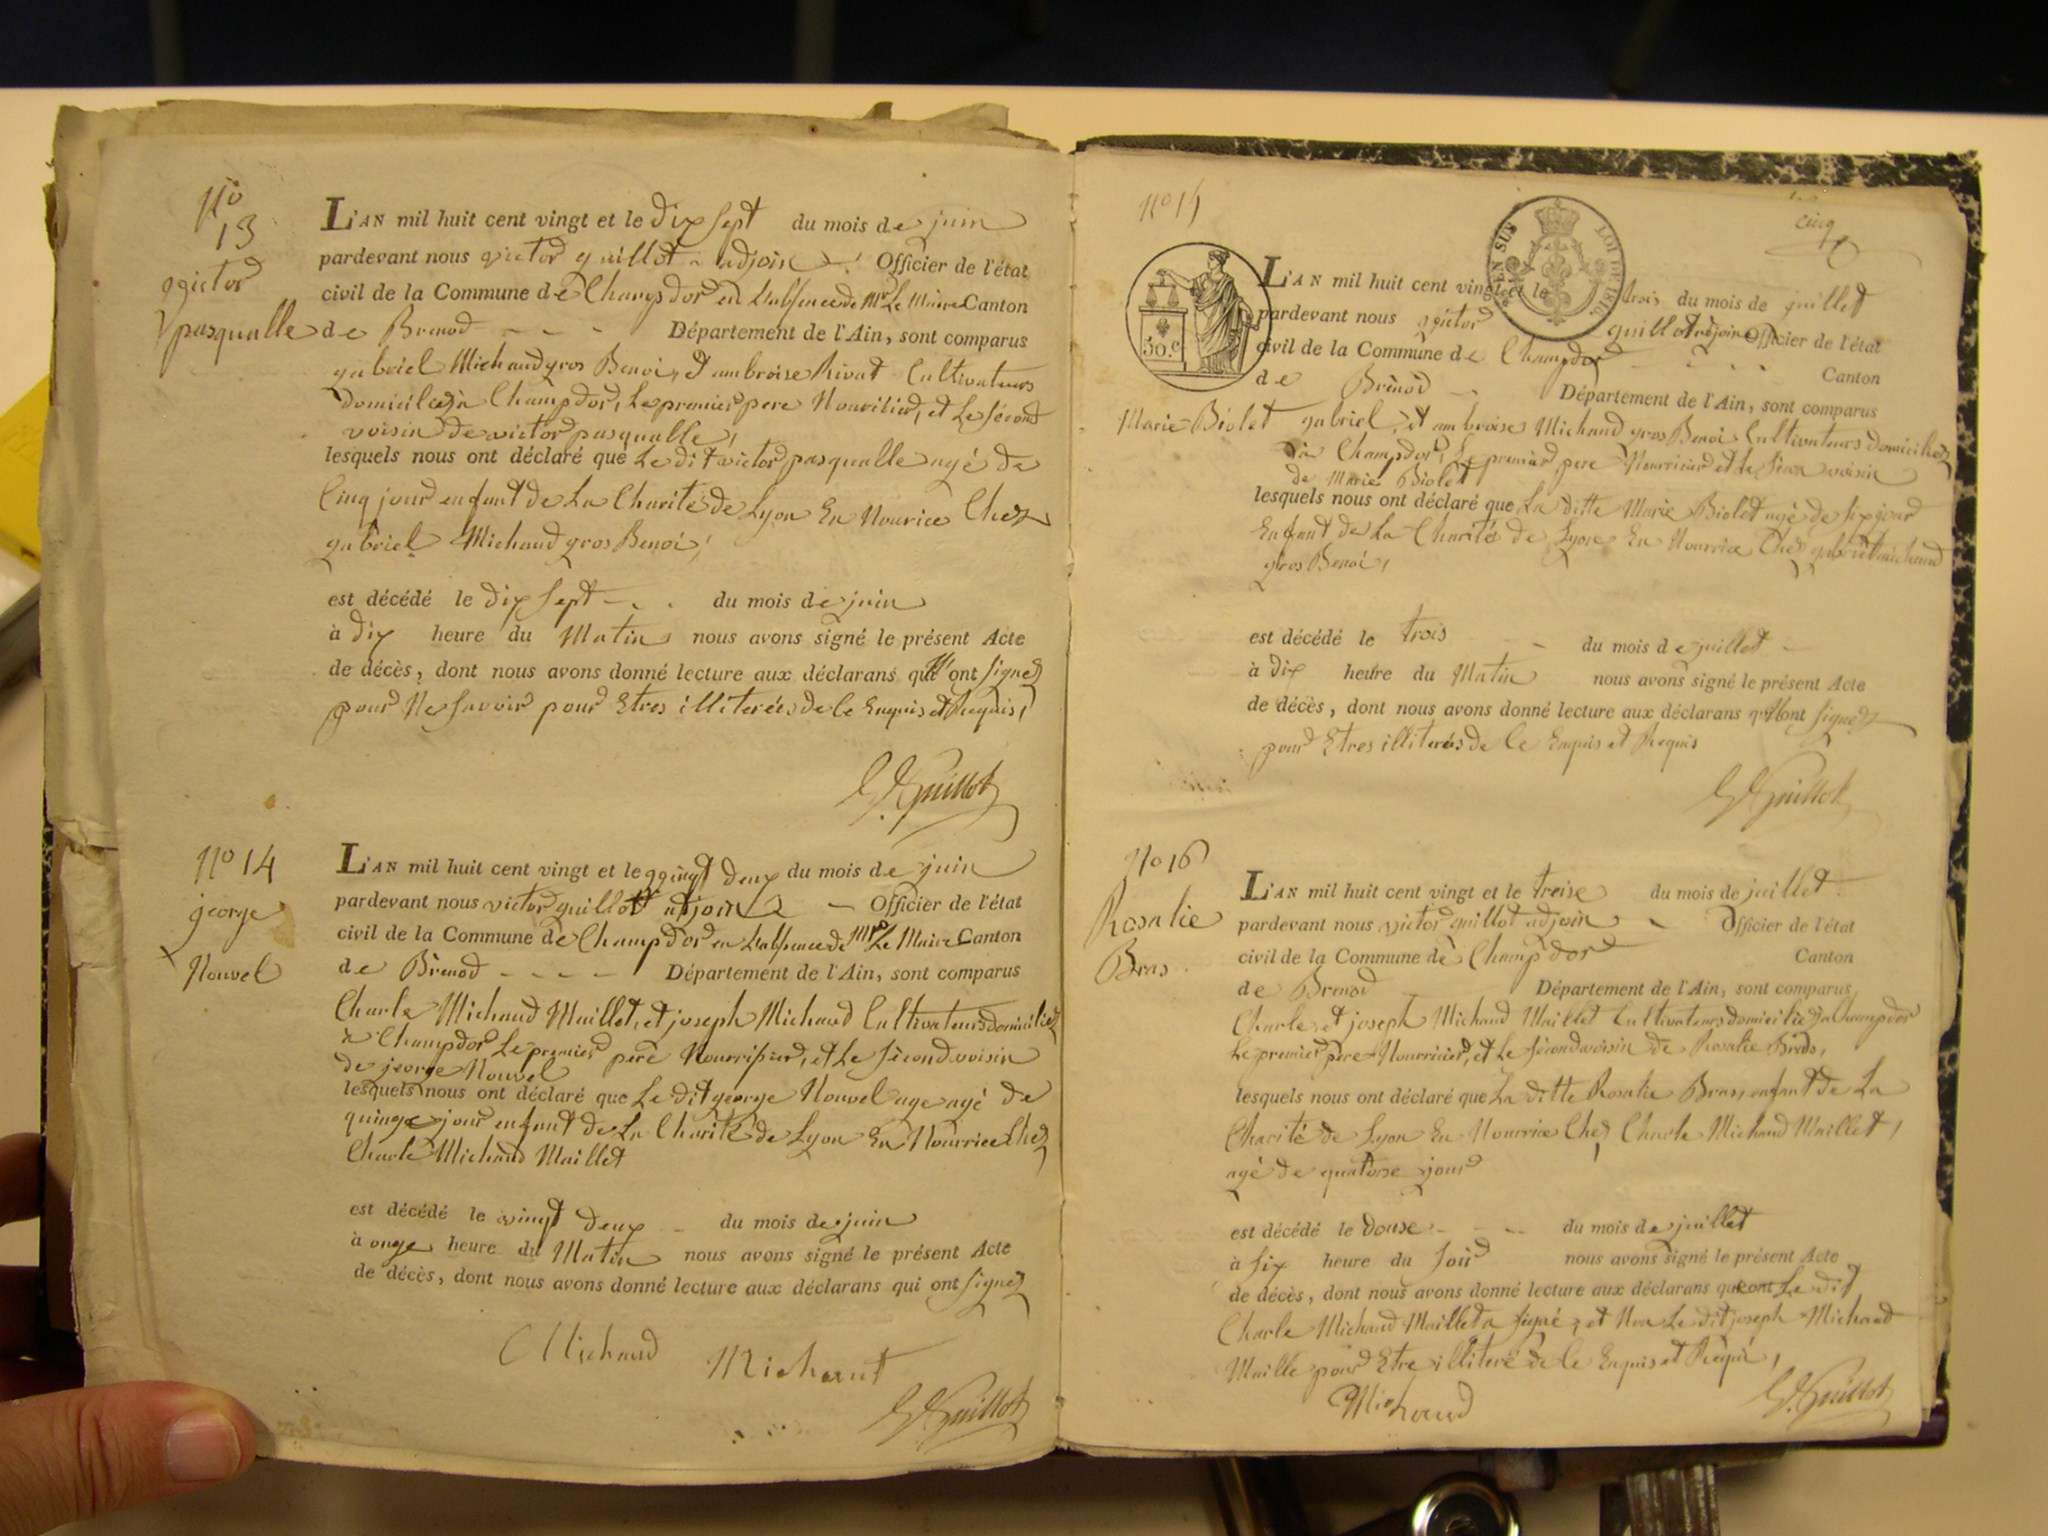 No
13
victor
pasqualle
L'AN mil huit cent vingt et le dix sept du mois de juin
pardevant nous victor guillot adjoin Officier de l'état
civil de la Commune de Champdor en L'absence de Mr Le Maire Canton
de Brenod Département de l'Ain, sont comparus
gabriel Michaud gros Benoi, et ambroise Rivat Cultivateurs
domiciliés à Champdor, Le premier pere Nouricier, et Le sécond
voisin de victor pasqualle,
lesquels nous ont déclaré que Le dit victor pasqualle agé de
Cinq jour enfant de La Charité de Lyon En Nourice Chez
gabriel Michaud gros Benoi,
est décédé le dix sept du mois de juin
à dix heure du Matin nous avons signé le présent Acte
de décès, dont nous avons donné lecture aux déclarans qui n'ont signez
pour Ne savoir pour Etres illiterées de ce Enquis et Requis,
Guillot
No 14
george
Nouvel
L'AN mil huit cent vingt et le vingt deux du mois de juin
pardevant nous victor guillot adjoin Officier de l'état
civil de la Commune de Champdor en L'absence de Mr Le Maire Canton
de Brénod Département de l'Ain, sont comparus
Charle Michaud Maillet, et joseph Michaud Cultivateurs domiciliez
a Champdor Le premier pere Nourrisier, et Le sécond voisin
de jeorge Nouvel
lesquels nous ont déclaré que Le dit george Nouvel age agé de
quinze jour enfant de La Charité de Lyon En Nourrice Chez
Charle Michaud Maillet
est décédé le vingt deux du mois de juin
à onze heure du Matin nous avons signé le présent Acte
de décès, dont nous avons donné lecture aux déclarans qui ont signez
Michaud Michaut
Guillot
No 15
cinq
EN SUS LOI DE 1816
30.c
Marie Biolet
L'AN mil huit cent vingt et le trois du mois de juillet
pardevant nous victor guillot adjoin Officier de l'état
civil de la Commune de Champdor Canton
de Brénod Département de l'Ain, sont comparus
gabriel, et ambroise Michaud gros Benoi Cultivateurs domiciliez
à Champdor, Le premier pere Nourricier et Le sécon voisin
de Marie Biolet
lesquels nous ont déclaré que La ditte Marie Biolet agé de six jour
Enfant de La Charité de Lyon En Nourrice Chez gabriel michaud
gros Benoi,
est décédé le trois du mois de juillet
à dix heure du Matin nous avons signé le présent Acte
de décès, dont nous avons donné lecture aux déclarans qui n'ont signez
pour Etres illiterés de Ce Enquis et Requis
Guillot
No 16
Rosalie
Bras
L'AN mil huit cent vingt et le treise du mois de juillet
pardevant nous victor guillot adjoin Officier de l'état
civil de la Commune de Champdor Canton
de Brenod Département de l'Ain, sont comparus
Charle, et joseph Michaud Maillet Cultivateurs domicilié à Champdor
Le premier pere Nourricier, et Le sécond voisin de Rosalie Bras,
lesquels nous ont déclaré que La ditte Rosalie Bras, enfant de La
Charité de Lyon En Nourrice Chez Charle Michaud Maillet,
agé de quatorse jour
est décédé le douse du mois de juillet
à six heure du soir nous avons signé le présent Acte
de décès, dont nous avons donné lecture aux déclarans que ont Le dit
Charle Michaud Maillet a signé, et Non Le dit joseph Michaud
Maille pour Etre illiteré de Ce Enquis et Requi,
Michaud
Guillot